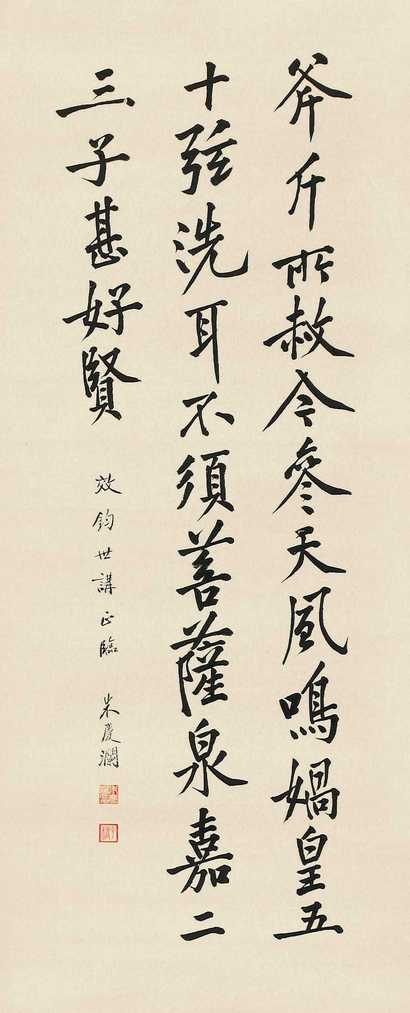 斧斤所赦今參天風鳴媧皇五
十弦洗耳不須菩薩泉嘉二
三子甚好賢
效鈞世講正臨
朱慶瀾